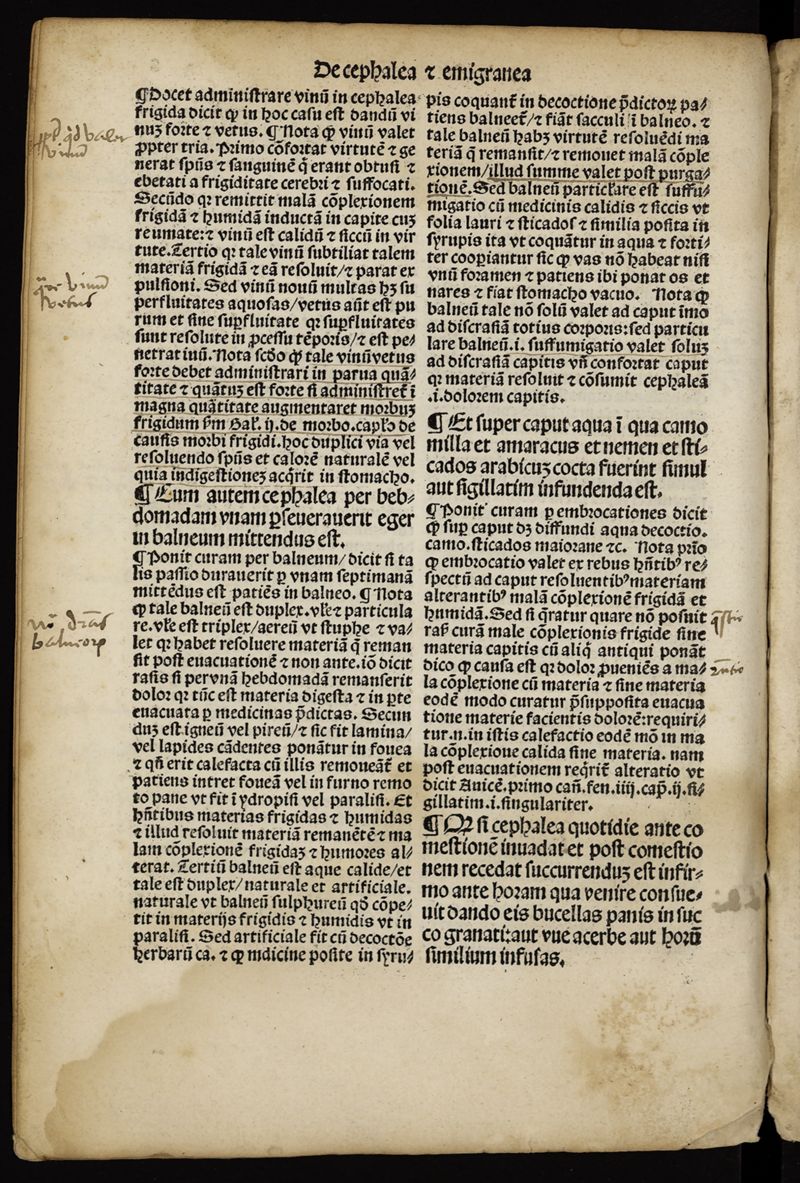 De cephalea ⁊ emigranea
¶Docet adminiſtrare vinū in cephalea
frigida dicit ꝙ in hoc caſu eſt dandū vi
nuꝫ forte ⁊ vetus. ¶Nota ꝙ vinū valet
ꝓpter tria. Primo cōfortat virtutē ⁊ ge
nerat ſpūs ⁊ ſanguinē q̄ erant obtuſi ⁊
ebetati a frigiditate cerebri ⁊ ſuffocati.
Secūdo qꝛ remittit malā cōplexionem
frigidā ⁊ humidā inductā in capite cuꝫ
reumate:⁊ vinū eſt calidū ⁊ ſiccū in vir
tute.Tertio qꝛ tale vinū ſubtiliat talem
materiā frigidā ⁊ eā reſoluit/⁊ parat ex
pulſioni. Sed vinū nouū multas hꝫ ſu
perfluitates aquoſas/vetus aūt eſt pu
rum et ſine ſuꝑfluitate qꝛ ſuꝑfluitates
ſunt reſolute in ꝓceſſu tēporis/⁊ eſt pe⸗
netratiuū.Nota ſcdo ꝙ tale vinūvetus
forte debet adminiſtrari in parua quā⸗
titate ⁊ quātuꝫ eſt forte ſi adminiſtret̄ ī
magna quātitate augmentaret morbuꝫ
frigidum ẜm Gal. ij.de morbo.capło de
cauſis morbi frigidi.hoc duplici via vel
reſoluendo ſpūs et calorē naturalē vel
quia indigeſtioneꝫ acq̇rit in ſtomacho.
¶Cum autem cephalea per heb⸗
domadam vnam ꝑſeuerauerit eger
in balneum mittendus eſt.
¶Ponit curam per balneum/dicit ſi ta
lis paſſio durauerit ꝑ vnam ſeptimanā
mittēdus eſt patiēs in balneo. ¶Nota
ꝙ tale balneū eſt duplex.vłe⁊ particula
re.vłe eſt triplex/aereū vt ſtuphe ⁊ va⸗
let qꝛ habet reſoluere materiā q̄ reman
ſit poſt euacuationē ⁊ non ante.iō dicit
raſis ſi pervnā hebdomadā remanſerit
dolor qꝛ tūc eſt materia digeſta ⁊ in ꝑte
euacuata ꝑ medicinas p̄dictas. Secun
duꝫ eſt igneū vel pireū/⁊ ſic fit lamina/
vel lapides cādentes ponātur in fouea
⁊ qn̄ erit calefacta cū illis remoueāt̄ et
patiens intret foueā vel in furno remo
to pane vt fit ī ydropiſi vel paraliſi. Et
hn̄tibus materias frigidas ⁊ humidas
⁊ illud reſoluit materiā remanētē ⁊ ma
lam cōplexionē frigidaꝫ ⁊ humores al⸗
terat. Tertiū balneū eſt aque calide/et
tale eſt duplex/naturale et artificiale.
naturale vt balneū ſulphureū qd̄ cōpe⸗
tit in materijs frigidis ⁊ humidis vt in
paraliſi. Sed artificiale fit cū decoctōe
herbarū ca. ⁊ ꝙ mdicine poſite in ſyru⸗
pis coquant̄ in decoctione p̄dictoꝝ pa⸗
tiens balneet̄/⁊ fiāt ſacculi ī balneo. ⁊
tale balneū habꝫ virtutē reſoluēdi ma
teriā q̄ remanſit/⁊ remouet malā cōple
xionem/illud ſumme valet poſt purga⸗
tionē.Sed balneū particłare eſt ſuffu⸗
migatio cū medicinis calidis ⁊ ſiccis vt
folia lauri ⁊ ſticadoſ ⁊ ſimilia poſita in
ſyrupis ita vt coquātur in aqua ⁊ forti⸗
ter coopiantur ſic ꝙ vas nō habeat niſi
vnū foramen ⁊ patiens ibi ponat os et
nares ⁊ fiat ſtomacho vacuo. Nota ꝙ
balneū tale nō ſolū valet ad caput īmo
ad diſcraſiā totius corporis:ſed particu
lare balneū.i. ſuffumigatio valet ſoluꝫ
ad diſcraſiā capitis vn̄ confortat caput
qꝛ materiā reſoluit ⁊ cōſumit cephaleā
.i.dolorem capitis.
¶Et ſuper caput aqua ī qua camo
milla et amaracus et nemen et ſti⸗
cados arabicuꝫ cocta fuerint ſimul
aut ſigillatim infundenda eſt.
¶Ponit curam ꝑ embrocationes dicit
ꝙ ſuꝑ caput dꝫ diffundi aqua decoctio.
camo.ſticados maiorane ⁊c. Nota prīo
ꝙ embrocatio valet ex rebus hn̄tibꝰ re⸗
ſpectū ad caput reſoluentibꝰmateriam
alterantibꝰ malā cōplexionē frigidā et
humidā.Sed ſi q̄ratur quare nō poſuit
raſ. curā male cōplexionis frigide ſine
materia capitis cū aliq̇ antiqui ponāt
dico ꝙ cauſa eſt qꝛ dolor ꝓueniēs a ma⸗
la cōplexione cū materia ⁊ ſine materia
eodē modo curatur p̄ſuppoſita euacua
tione materie facientis dolorē:requiri⸗
tur.n.in iſtis calefactio eodē mō in ma
la cōplexione calida ſine materia. nam
poſt euacuationem req̇rit̄ alteratio vt
dicit Auicē.primo cań.fen.iiij.cap.ij.ſi⸗
gillatim.i.ſingulariter.
¶Qꝛ ſi cephalea quotidie ante co
meſtionē inuadat et poſt comeſtio
nem recedat ſuccurrenduꝫ eſt infir⸗
mo ante horam qua venire conſue⸗
uit dando eis bucellas panis in ſuc
co granati:aut vue acerbe aut horū
ſimilium infuſas.